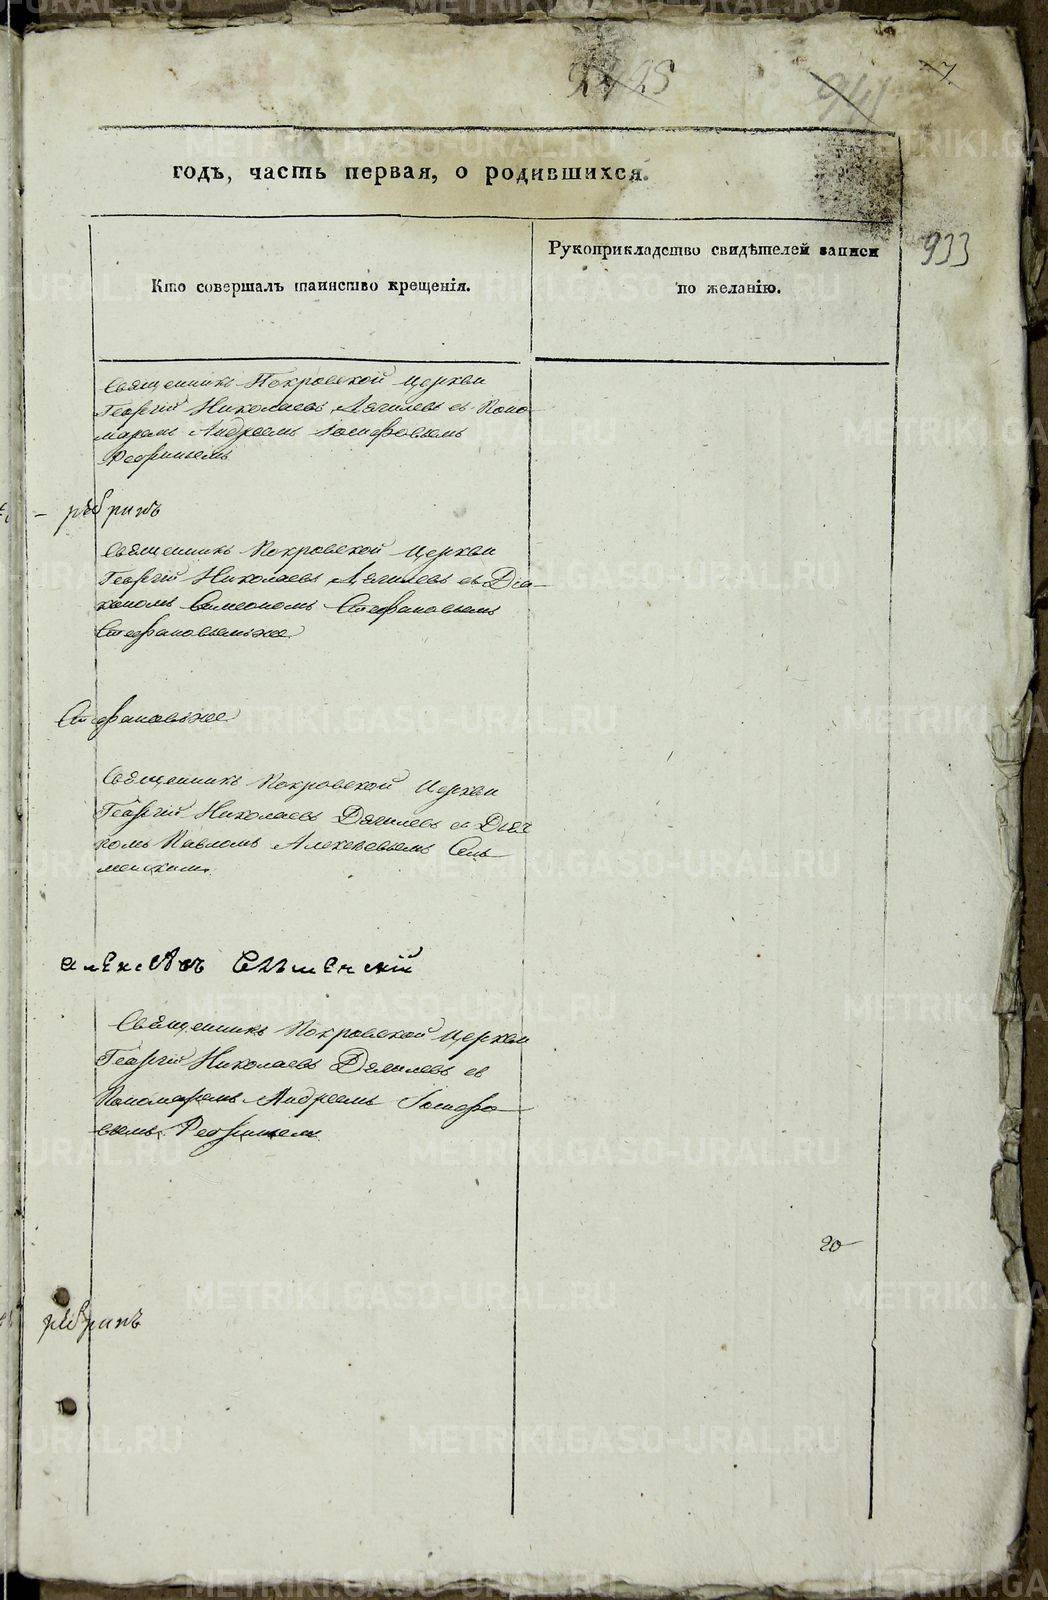 941
7
годъ, часть первая, о родившихся.
933
Кто совершалъ таинство крещенія.
Рукоприкладство свидѣтелей записи
по желанію.
Священникъ Покровской Церкви
Георгій Николаевъ Дягилевъ съ Поно-
маремъ Андреемъ Іосифовымъ
Ребринымъ
рѣбринъ
Священникъ Покровской Церкви
Георгій Николаевъ Дягилевъ съ Діа-
кономъ Симеономъ Стефановымъ
Стефановымъ же
Стефановъ же
Священникъ Покровской Церкви
Георгій Николаевъ Дягилевъ съ Дьяч
комъ Павломъ Алексѣевымъ Сель-
менскимъ
Алексѣевъ Сельменскій
Священникъ Покровской Церкви
Георгій Николаевъ Дягилевъ съ
Пономаремъ Андреемъ Іосифо-
вымъ Ребринымъ
20
рѣбринъ
METRIKI.GASO-URAL.RU